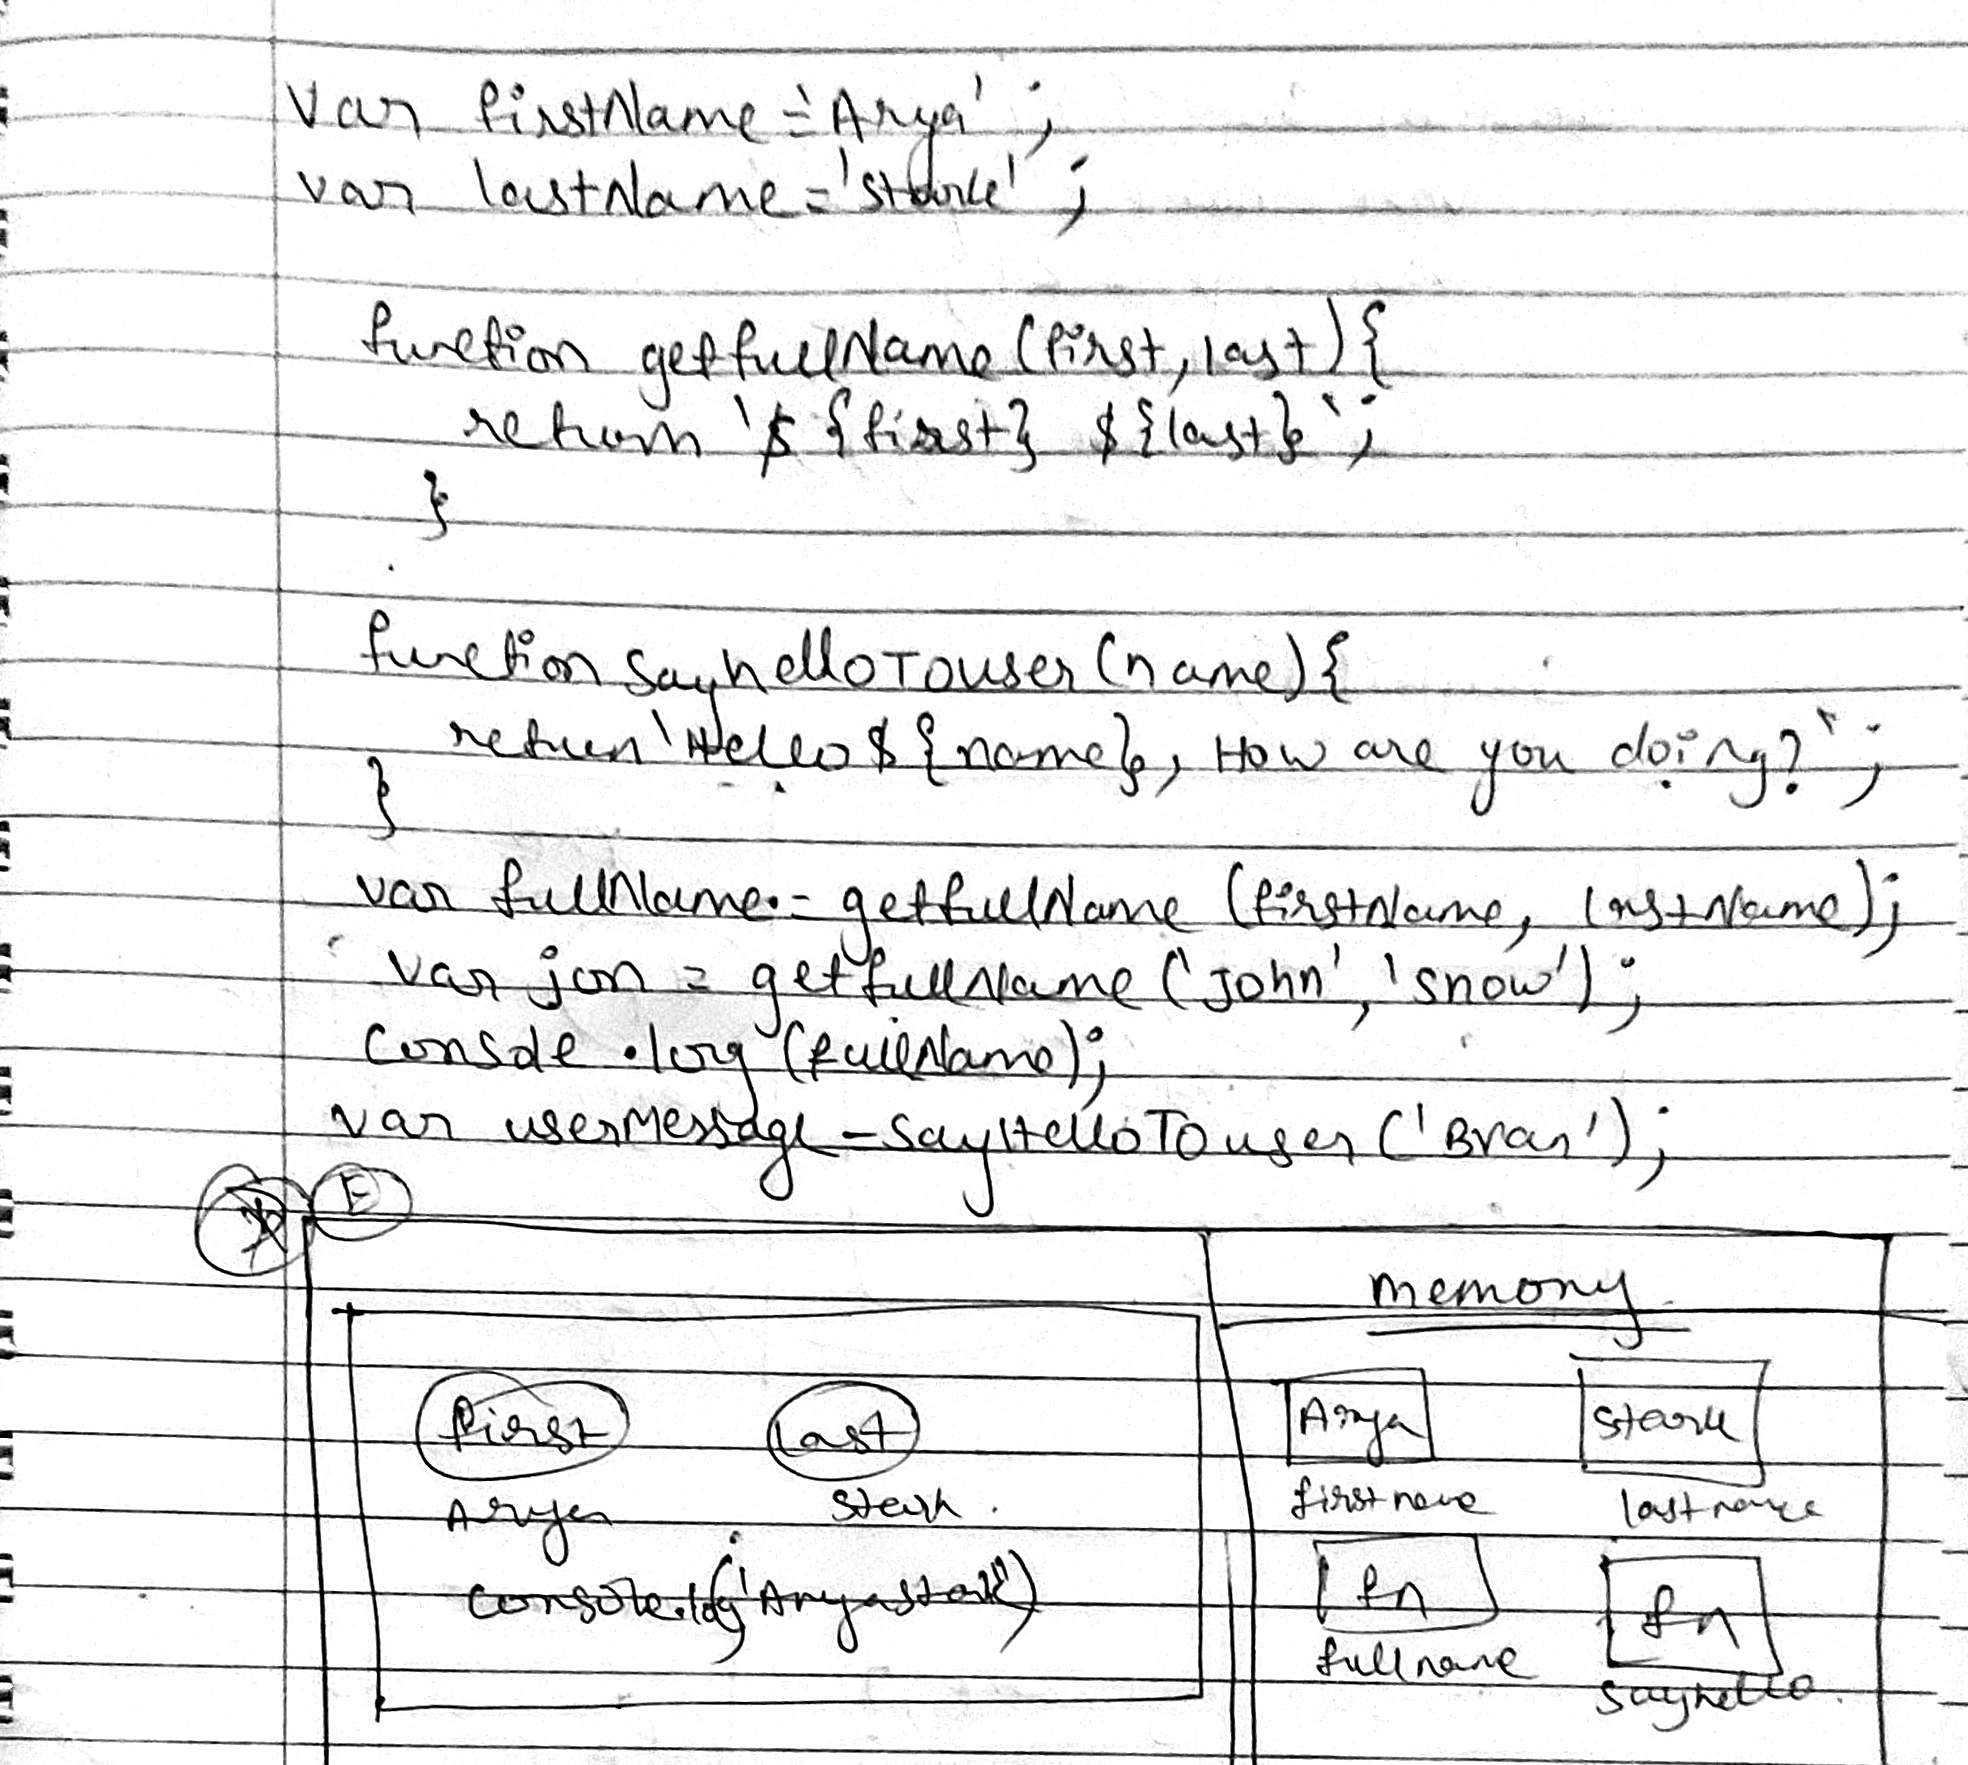 var firstName = 'Arya';
var lastName = 'Stark';
function getfullName (first, last) {
return `${first} ${last}`;
}
function sayhelloTouser (name) {
return `Hello ${name}, How are you doing?`;
}
var fullName = getfullName (firstName, lastName);
var jon = getfullName ('John', 'snow');
console.log (fullName);
var userMessage = sayHelloTouser ('Bran');
E
memory
first last Arya stark
Arya stark. firstname lastname
console.log('Arya stark') fn fn
fullname sayhello.